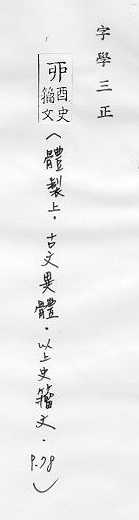 字學三正
丣 酉史籀文
（體製上．古文異體．以上史籀文．P.78）